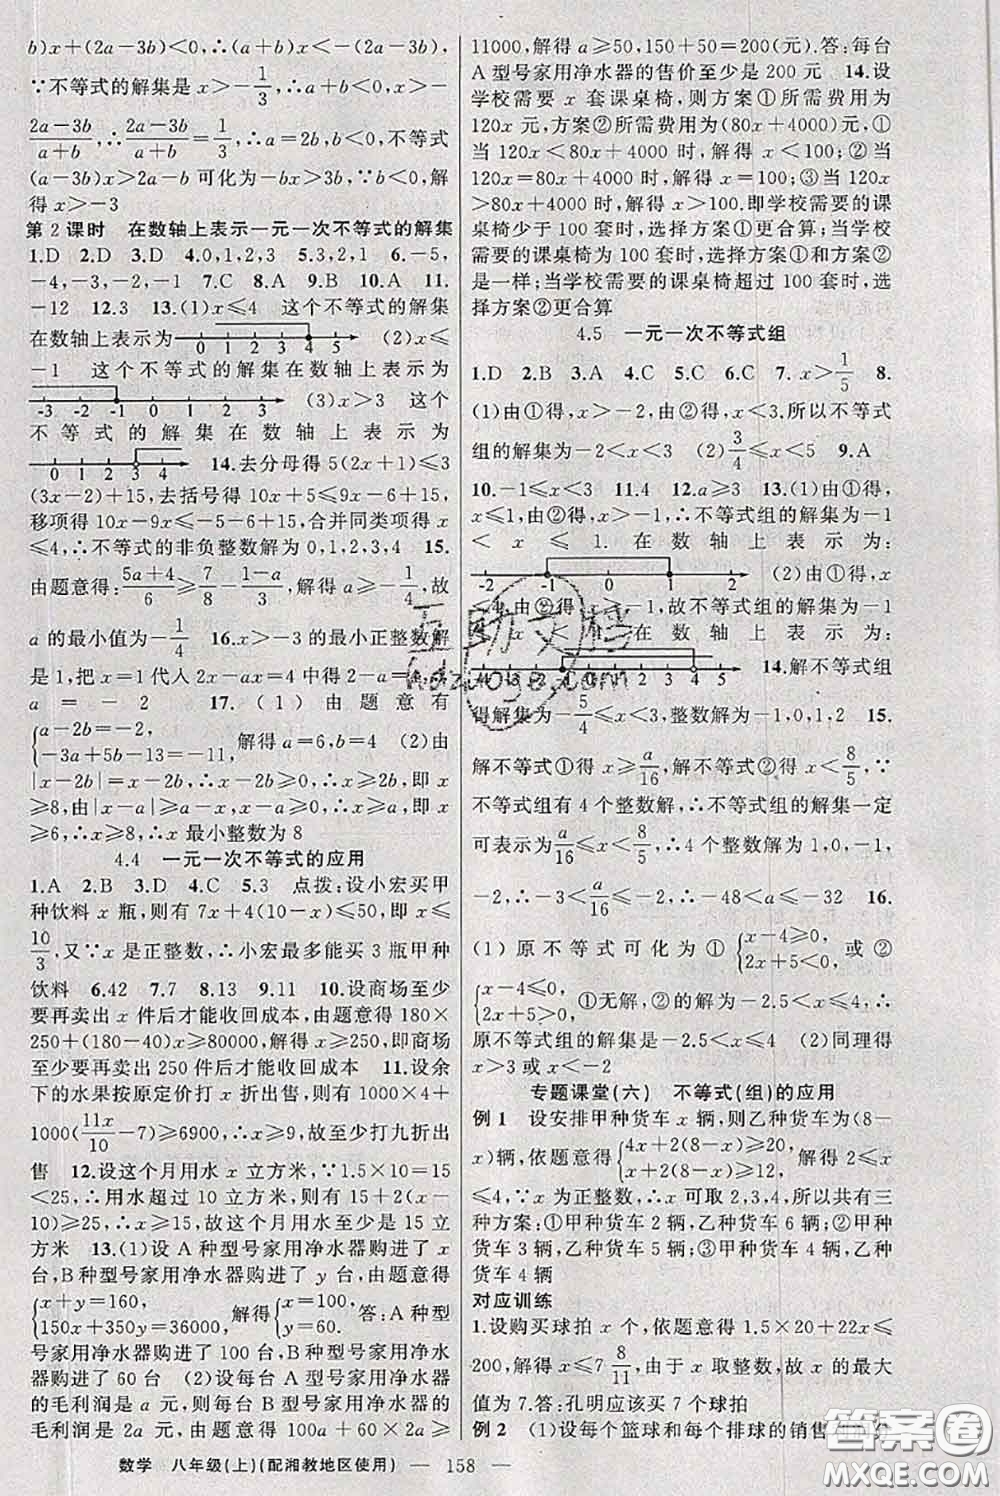 b)x+(2a-3b)<0,∴(a+b)x<-(2a-3b),
∵不等式的解集是 x>-1/3,∴a+b<0,x>-
(2a-3b)/(a+b),∴(2a-3b)/(a+b)=1/3,∴a=2b,b<0,不等式
(a-3b)x>2a-b 可化为-bx>3b,∵b<0,解
得 x>-3
第2课时 在数轴上表示一元一次不等式的解集
1.D 2.D 3.D 4.0,1,2 5.3,2,1 6.-5,
-4,-3,-2,-1 7.C 8.A 9.B 10.A 11.
-12 12.3 13.(1)x≤4 这个不等式的解集
在数轴上表示为 0 1 2 3 4 5 (2)x≤
-1 这个不等式的解集在数轴上表示为
-3 -2 -1 0 1 2 3 (3)x>3 这个
不等式的解集在数轴上表示为
0 1 2 3 4 14.去分母得 5(2x+1)≤3
(3x-2)+15,去括号得 10x+5≤9x-6+15,
移项得 10x-9x≤-5-6+15,合并同类项得 x
≤4,∴不等式的非负整数解为 0,1,2,3,4 15.
由题意得:(5a+4)/6≥7/8-(1-a)/3,解得 a≥-1/4,故
a 的最小值为-1/4 16.x>-3 的最小正整数解
是 1,把 x=1 代人 2x-ax=4 中得 2-a=4,
a=-2 17.(1)由题意有
{a-2b=-2,
-3a+5b-13=-11, 解得 a=6,b=4 (2)由
|x-2b|=x-2b,∴x-2b≥0,∴x≥2b,即 x
≥8,由|x-a|≥a-x,∴x-a≥0,∴x≥a,即 x
≥6,∴x≥8,∴x 最小整数为 8
4.4 一元一次不等式的应用
1.A 2.B 3.D 4.C 5.3 点拨:设小宏买甲
种饮料 x 瓶,则有 7x+4(10-x)≤50,即 x≤
10/3,又∵x 是正整数,∴小宏最多能买 3 瓶甲种
饮料 6.42 7.7 8.13 9.11 10.设商场至少
要再卖出 x 件后才能收回成本,由题意得 180×
250+(180-40)x≥80000,解得 x≥250,即商场
至少要再卖出 250 件后才能收回成本 11.设余
下的水果按原定价打 x 折出售,有 1000×4+
1000(11x/10-7)≥6900,∴x≥9,故至少打九折出
售 12.设这个月用水 x 立方米,∵1.5×10=15
<25,∴用水超过 10 立方米,则有 15+2(x-10)
≥25,∴x≥15,故这个月用水至少是 15 立
方米 13.(1)设 A 种型号家用净水器购进了 x
台,B 种型号家用净水器购进了 y 台,由题意得
{x+y=160,
150x+350y=36000, 解得{x=100,
y=60. 答:A 种型
号家用净水器购进了 100 台,B 种型号家用净水
器购进了 60 台 (2)设每台 A 型号家用净水器
的毛利润是 a 元,则每台 B 型号家用净水器的
毛利润是 2a 元,由题意得 100a+60×2a≥
11000,解得 a≥50,150+50=200(元).答:每台
A 型号家用净水器的售价至少是 200 元 14.设
学校需要 x 套课桌椅,则方案①所需费用为
120x 元,方案②所需费用为(80x+4000)元,①
当 120x<80x+4000 时,解得 x<100;②当
120x=80x+4000 时,解得 x=100;③当 120x
>80x+4000 时,解得 x>100.即学校需要的课
桌椅少于 100 套时,选择方案①更合算;当学校
需要的课桌椅为 100 套时,选择方案①和方案②
是一样;当学校需要的课桌椅超过 100 套时,选
择方案②更合算
4.5 一元一次不等式组
1.D 2.B 3.A 4.C 5.C 6.C 7.x>1/5 8.
(1)由①得,x>-2,由②得,x<3.所以不等式
组的解集为-2<x<3 (2)3/4≤x<5 9.A
10.-1≤x<3 11.4 12.a≥3 13.(1)由①得,
x≤1,由②得,x>-1,∴不等式组的解集为-1
<x≤1.在数轴上表示为:
-2 -1 0 1 2 (2)由①得,x
<4,由②得,x>-1,故不等式组的解集为-1
<x<4.在数轴上表示为:
-4 -3 -2 -1 0 1 2 3 4 5 14.解不等式组
得解集为-5/4≤x<3,整数解为-1,0,1,2 15.
解不等式①得 x≥a/16,解不等式②得 x<8/5,∵
不等式组有 4 个整数解,∴不等式组的解集一定
可表示为a/16≤x<8/5,∴4 个整数解为 1,0,-1,
-2,∴-3<a/16≤-2,∴-48<a≤-32 16.
(1)原不等式可化为①{x-4≥0,
2x+5<0, 或②
{x-4≤0,
2x+5>0, ①无解,②的解为-2.5<x≤4,∴
原不等式组的解集为-2.5<x≤4 (2)同理得
x>3 或 x<-2
专题课堂(六) 不等式(组)的应用
例 1 设安排甲种货车 x 辆,则乙种货车为(8-
x)辆,依题意得{4x+2(8-x)≥20,
x+2(8-x)≥12, 解得 2≤x
≤4,∵x 为正整数,∴x 可取 2,3,4,所以共有三
种方案:①甲种货车 2 辆,乙种货车 6 辆;②甲种
货车 3 辆,乙种货车 5 辆;③甲种货车 4 辆,乙种
货车 4 辆
对应训练
1.设购买球拍 x 个,依题意得 1.5×20+22x≤
200,解得 x≤7 8/11,由于 x 取整数,故 x 的最大
值为 7.答:孔明应该买 7 个球拍
例 2 (1)设每个篮球和每个排球的销售利润分
数学 八年级(上)(配湘教地区使用) — 158 —
互助文档
hdzuoye.com
答案圈
MXQE.COM